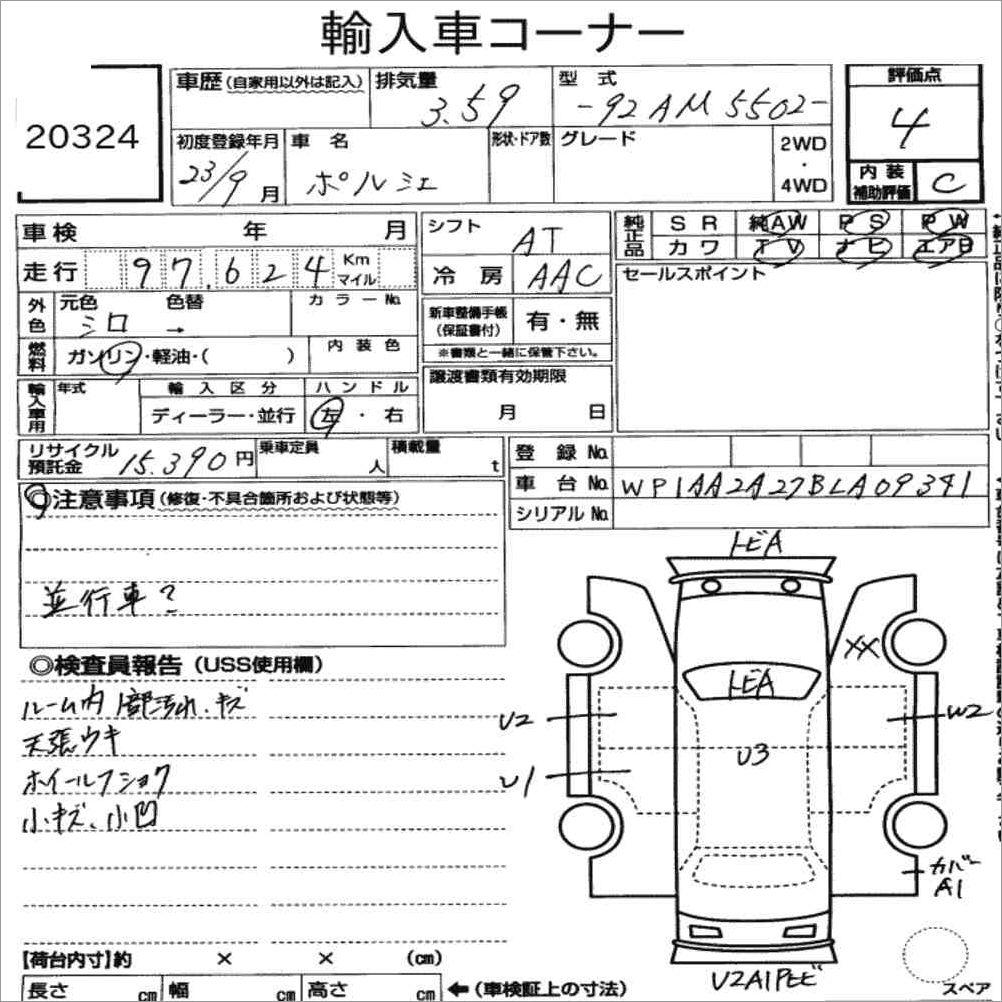 輸入車コーナー
20324
車歴(自家用以外は記入) 排気量 3.59 型式 -92AM5502- 評価点 4
初度登録年月 23/9月 車名 ポルシェ 形状・ドア数 グレード 2WD・4WD 内装補助評価 C
車検 年 月 シフト AT 純正品 SR 純AW PS PW
カワ TV ナビ エアB
走行 97,624 Km マイル 冷房 AAC セールスポイント
外色 元色 シロ 色替 → カラーNo. 新車整備手帳(保証書付) 有・無
※書類と一緒に保管下さい。
燃料 ガソリン・軽油・( ) 内装色
譲渡書類有効期限
月 日
輸入車用 年式 輸入区分 ハンドル
ディーラー・並行 左・右
リサイクル預託金 15.390円 乗車定員 人 積載量 t
登録No.
車台No. WP1AA2A27BLA09341
シリアルNo.
注意事項(修復・不具合箇所および状態等)
並行車?
◎検査員報告(USS使用欄)
ルーム内1部汚れ.キズ
天張ウキ
ホイールフショク
小キズ、小凹
トビA
XX
トビA
U2
W2
U3
U1
カバー
A1
U2A1Pヒビ
スペア
【荷台内寸】約 × × (cm)
長さ cm 幅 cm 高さ cm ←(車検証上の寸法)